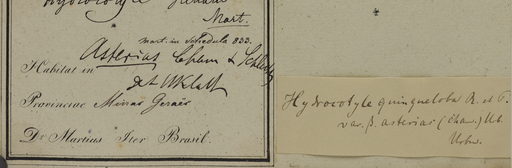 Hydrocotyle
Mart.
mart. in schedula 833.
Asterias Cham & Schlecht
Habitat in
Provinciae Minas Geraës
Dr. Martius Iter Brasil.
Hydrocotyle quinqueloba R. et P.
var. β. asterias (Cha.) Urb.
Urban.